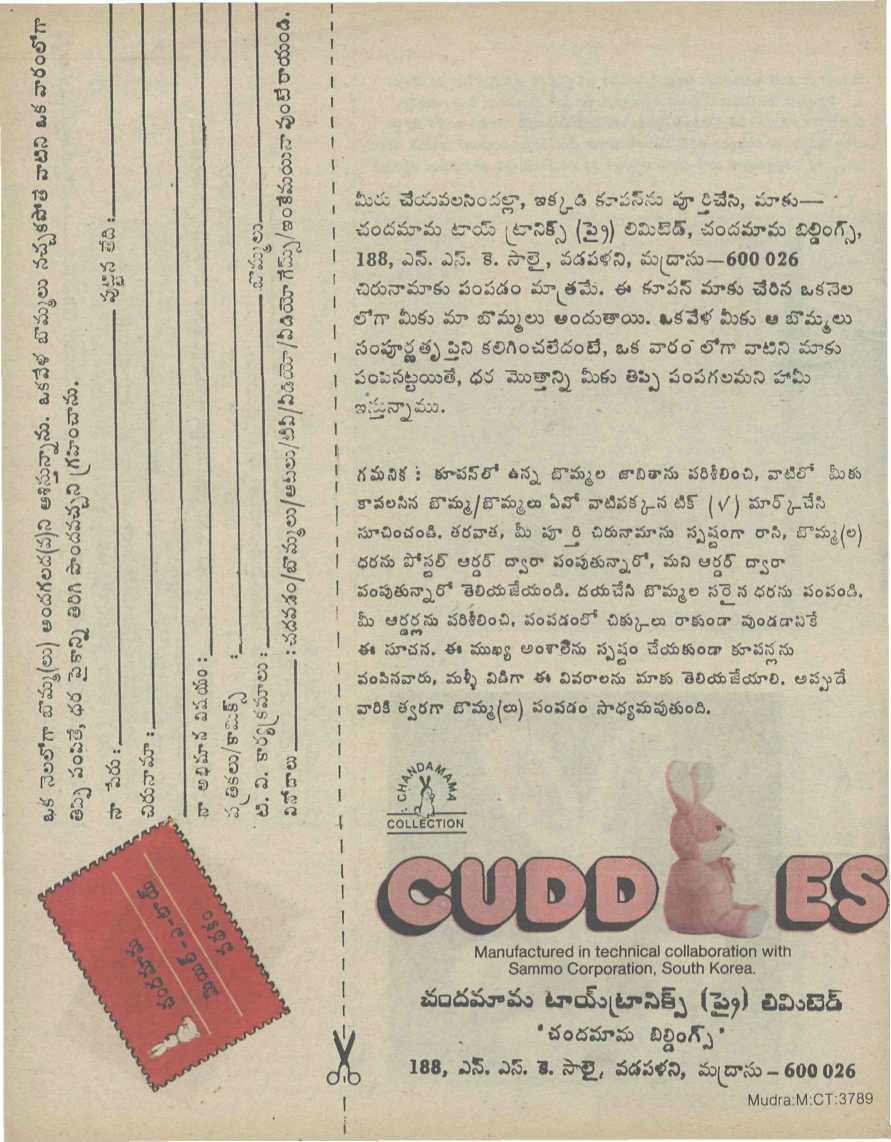 ఒక నెలలోగా బొమ్మ(లు) అందగలద(వ)ని ఆశిస్తున్నాను. ఒకవేళ బొమ్మలు నచ్చకపోతే వాటిని ఒక వారంలోగా
తిప్పి పంపితే, ధర పైకాన్ని తిరిగి పొందవచ్చని గ్రహించాను.
నా పేరు : పుట్టిన తేది :
చిరునామా :
నా అభిమాన విషయం :
పత్రికలు/కామిక్స్ :
టి. వి. కార్యక్రమాలు : బొమ్మలు
వినోదాలు : చదవడం/బొమ్మలు/ఆటలు/టీవి/వీడియో/వీడియోగేమ్స్/ఇంకేమయినా వుంటే రాయండి.
చందమామ
మెయిల్-ఎ-టాయ్
పథకం
మీరు చేయవలసిందల్లా, ఇక్కడి కూపన్‌ను పూర్తిచేసి, మాకు—
చందమామ టాయ్ ట్రానిక్స్ (ప్రై) లిమిటెడ్, చందమామ బిల్డింగ్స్,
188, ఎన్. ఎస్. కె. సాలై, వడపళని, మద్రాసు—600 026
చిరునామాకు పంపడం మాత్రమే. ఈ కూపన్ మాకు చేరిన ఒకనెల
లోగా మీకు మా బొమ్మలు అందుతాయి. ఒకవేళ మీకు ఆ బొమ్మలు
సంపూర్ణతృప్తిని కలిగించలేదంటే, ఒక వారం లోగా వాటిని మాకు
పంపినట్టయితే, ధర మొత్తాన్ని మీకు తిప్పి పంపగలమని హామీ
ఇస్తున్నాము.
గమనిక : కూపన్‌లో ఉన్న బొమ్మల జాబితాను పరిశీలించి, వాటిలో మీకు
కావలసిన బొమ్మ/బొమ్మలు ఏవో వాటిపక్కన టిక్ (√) మార్క్ చేసి
సూచించండి. తరవాత, మీ పూర్తి చిరునామాను స్పష్టంగా రాసి, బొమ్మ(ల)
ధరను పోస్టల్ ఆర్డర్ ద్వారా పంపుతున్నారో, మని ఆర్డర్ ద్వారా
పంపుతున్నారో తెలియజేయండి. దయచేసి బొమ్మల సరైన ధరను పంపండి.
మీ ఆర్డర్లను పరిశీలించి, పంపడంలో చిక్కులు రాకుండా వుండడానికే
ఈ సూచన. ఈ ముఖ్య అంశాలేను స్పష్టం చేయకుండా కూపన్లను
పంపినవారు, మళ్ళీ విడిగా ఈ వివరాలను మాకు తెలియజేయాలి. అప్పుడే
వారికి త్వరగా బొమ్మ(లు) పంపడం సాధ్యమవుతుంది.
CHANDAMAMA
COLLECTION
CUDDLES
Manufactured in technical collaboration with
Sammo Corporation, South Korea.
చందమామ టాయ్‌ట్రానిక్స్ (ప్రై) లిమిటెడ్
'చందమామ బిల్డింగ్స్'
188, ఎన్. ఎస్. కె. సాలై, వడపళని, మద్రాసు – 600 026
Mudra:M:CT:3789